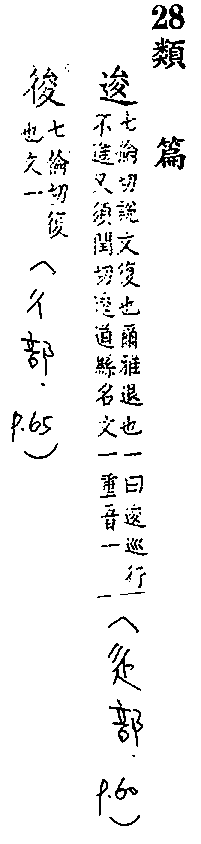 28類 篇
逡 七倫切說文復也爾雅退也一曰逡巡行不進又須閏切逡遒縣名文一重音一 (辵部. p.60)
後 七倫切復也文一 (彳部. p.65)